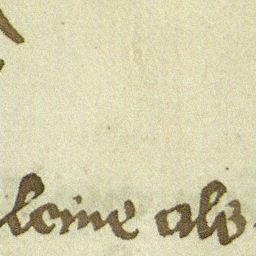 leine als